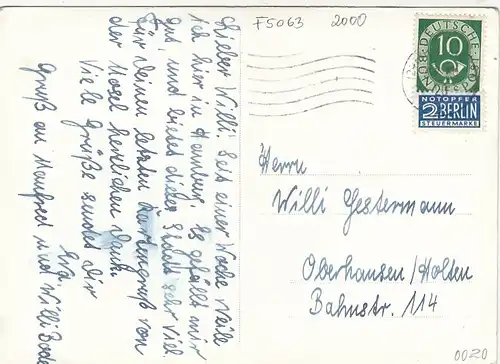 F5063 2000
DEUTSCHE BUNDESPOST
10
NOTOPFER
2 BERLIN
STEUERMARKE
Lieber Willi! Seit einer Woche weile
ich hier in Hamburg. Es gefällt mir
gut, und bietet diese Stadt sehr viel.
Für Deinen letzten Kartengruß von
der Mosel herzlichen Dank.
Viele Grüße sendet dir
Gruß an Manfred und Willi
Herrn
Willi Gestermann
Oberhausen/Holten
Bahnstr. 114
0020